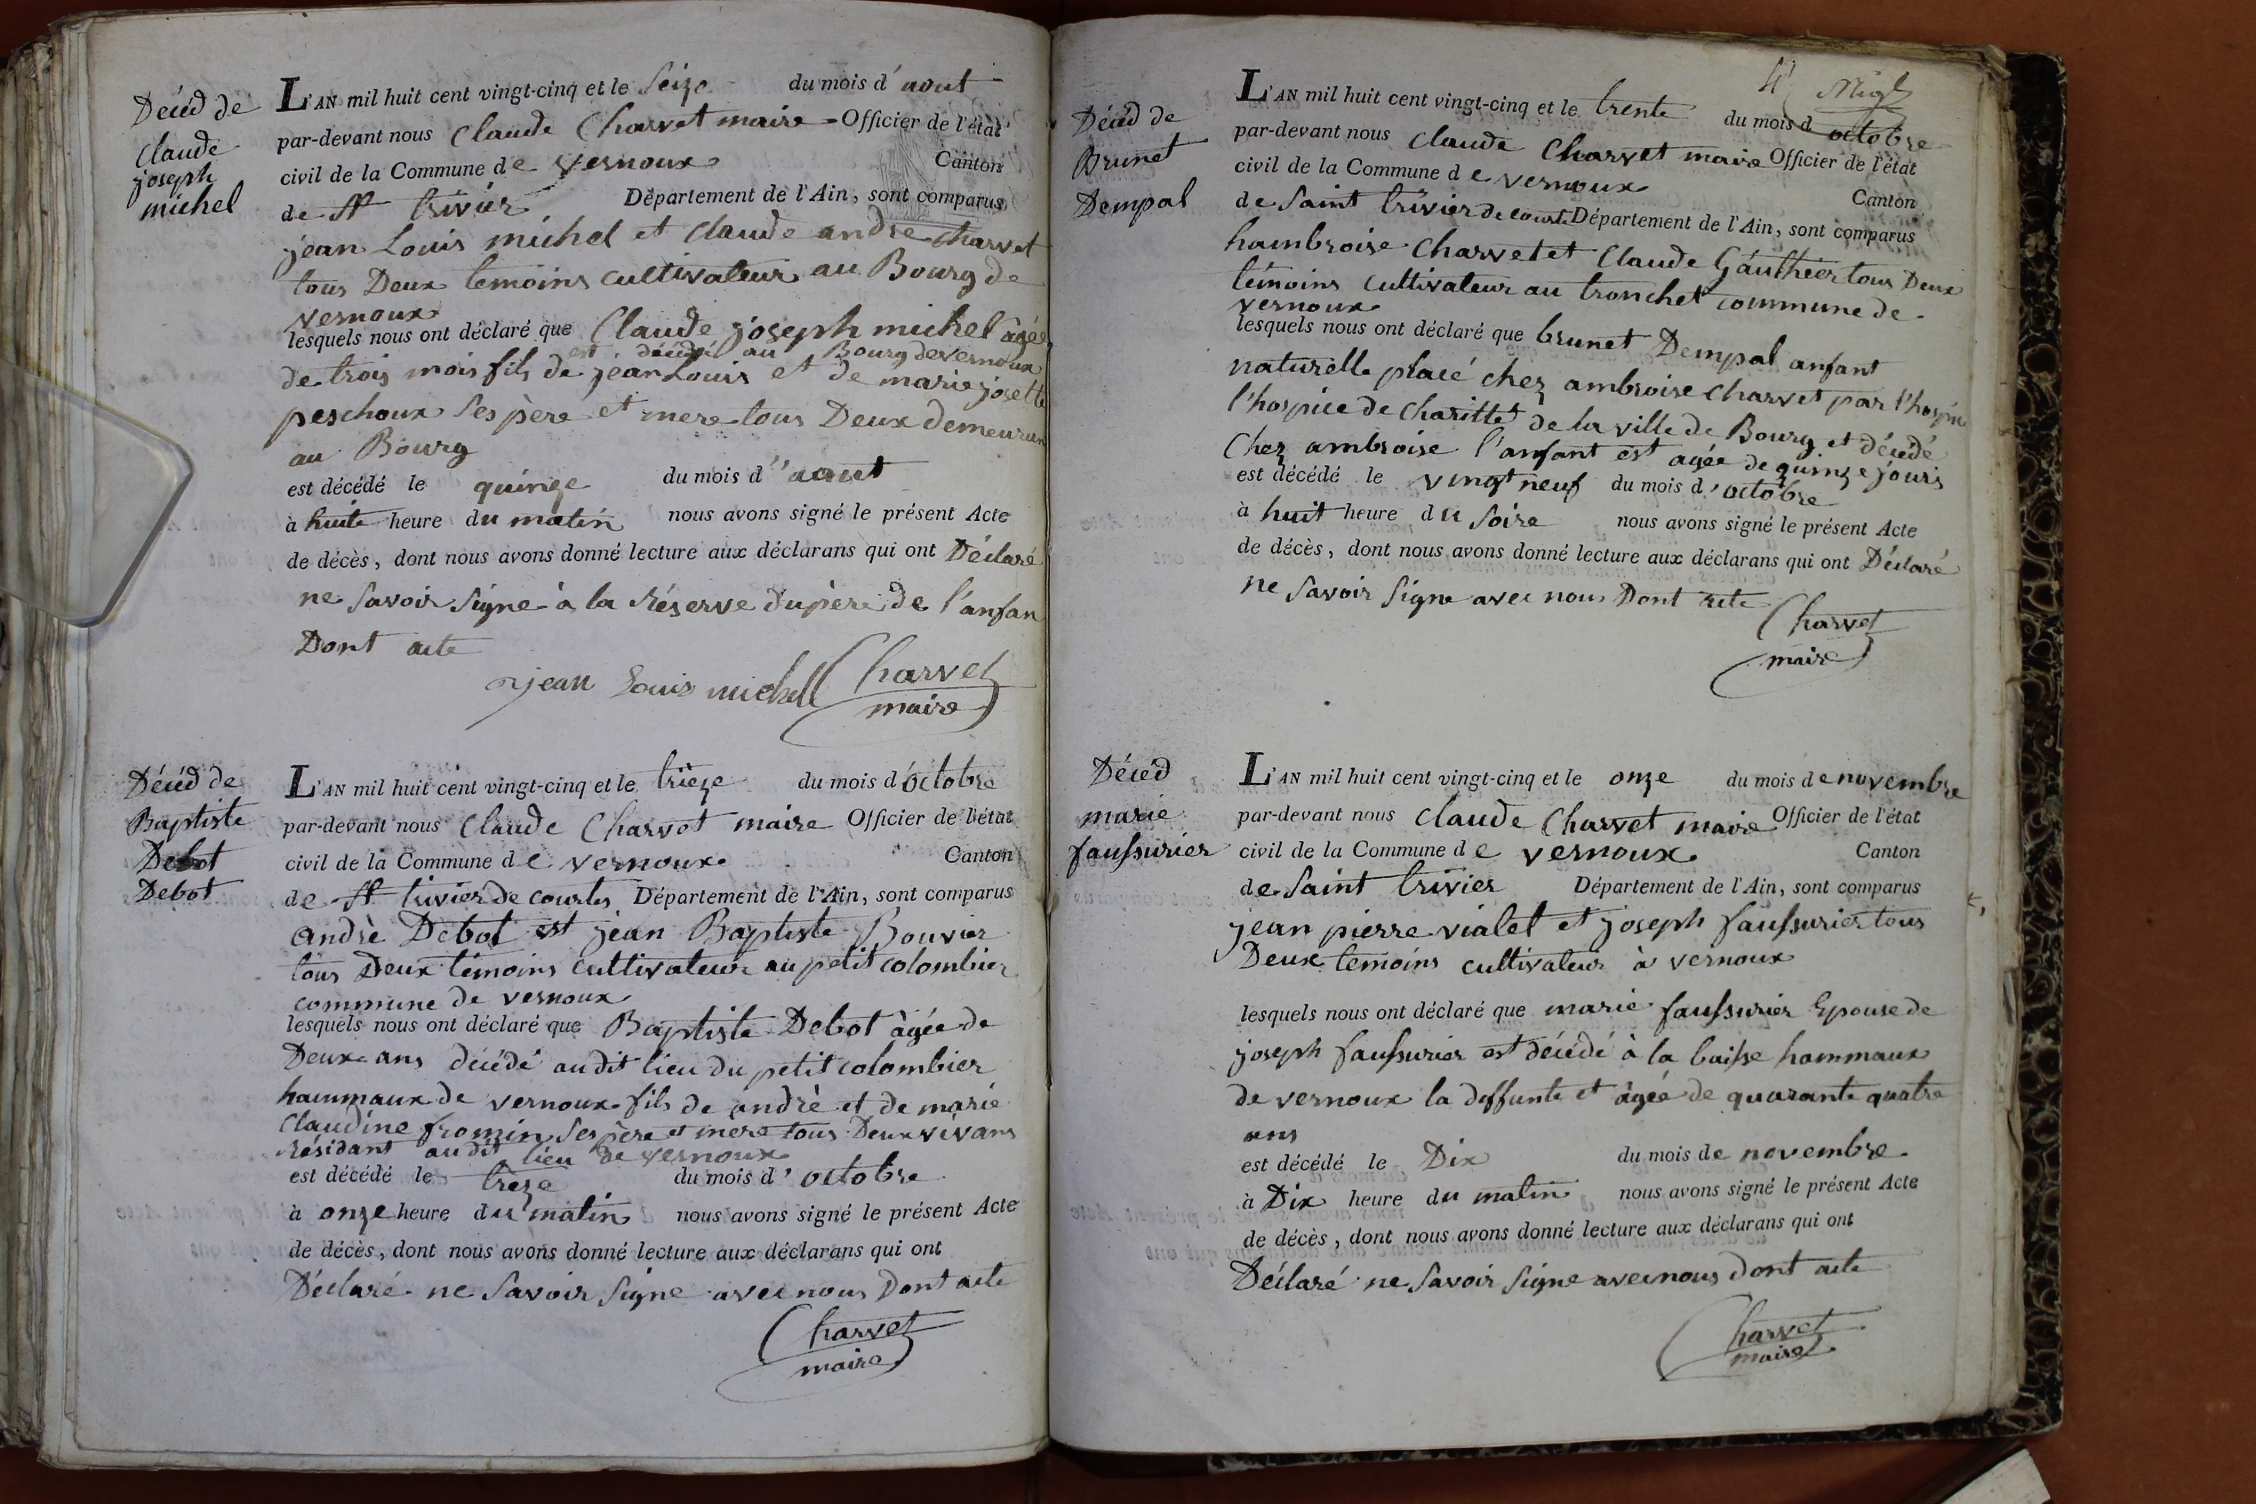 Décéd de
Claude
joseph
michel
L'AN mil huit cent vingt-cinq et le Seize du mois d'aout
par-devant nous Claude Charvet maire Officier de l'état
civil de la Commune de vernoux Canton
de St trivier Département de l'Ain, sont comparus
jean Louis michel et Claude andre charvet
tous Deux temoins cultivateur au Bourg de
vernoux
lesquels nous ont déclaré que Claude joseph michel àgée
est décédé au Bourg de vernoux
de trois mois fils de jéan Louis et de marie josette
peschoux ses père et mere tous Deux demeurun
au Bourg
est décédé le quinze du mois d'aout
à huite heure du matin nous avons signé le présent Acte
de décès, dont nous avons donné lecture aux déclarans qui ont Déclaré
ne savoir signe à la réserve du père de l'anfan
Dont acte
jean Louis michel Charvet
maire
Décéd de
Baptiste
Debot
Debot
L'AN mil huit cent vingt-cinq et le trièze du mois d'octobre
par-devant nous Claude Charvet maire Officier de l'état
civil de la Commune de vernoux Canton
de St trivier de courtes Département de l'Ain, sont comparus
andrè Debot est jéan Baptiste Bouvier
tous Deux témoins cultivateur au petit colombier
commune de vernoux
lesquels nous ont déclaré que Baptiste Debot àgée de
Deux ans décédé audit lieu du petit colombier
hammaux de vernoux fils de andrè et de marie
Claudine fromin ses père et mere tous Deux vivans
résidant audit lieu de vernoux
est décédé le treze du mois d'octobre
à onze heure du matin nous avons signé le présent Acte
de décès, dont nous avons donné lecture aux déclarans qui ont
Déclaré ne savoir signe avec nous Dont acte
Charvet
maire
4
Décéd de
Brunet
Dempal
L'AN mil huit cent vingt-cinq et le trente du mois d octobre
par-devant nous Claude Charvet maire Officier de l'état
civil de la Commune de vernoux Canton
de Saint trivier de courte Département de l'Ain, sont comparus
hambroise Charvet et Claude Gauthier tous Deux
témoins cultivateur au tronchet commune de
vernoux
lesquels nous ont déclaré que brunet Dempal anfant
naturelle placé chez ambroise charvet par l'hospice
l'hospice de charitté de la ville de Bourg et décédé
Chez ambroise l'anfant est agée de quinze jours
est décédé le vingt neuf du mois d'octobre
à huit heure du soire nous avons signé le présent Acte
de décès, dont nous avons donné lecture aux déclarans qui ont Déclaré
ne savoir signe avec nous Dont acte
Charvet
maire
Décéd
marie
faussurier
L'AN mil huit cent vingt-cinq et le onze du mois de novembre
par-devant nous Claude Charvet maire Officier de l'état
civil de la Commune de vernoux Canton
de Saint trivier Département de l'Ain, sont comparus
jean pierre vialet et joseph faussurier tous
Deux temoins cultivateur à vernoux
lesquels nous ont déclaré que marie faussurier Epouse de
joseph faussurier est décédé à la baisse hammaux
de vernoux la deffunte et àgée de quarante quatre
ans
est décédé le Dix du mois de novembre
à Dix heure du matin nous avons signé le présent Acte
de décès, dont nous avons donné lecture aux déclarans qui ont
Déclaré ne savoir signe avec nous dont acte
Charvet
maire